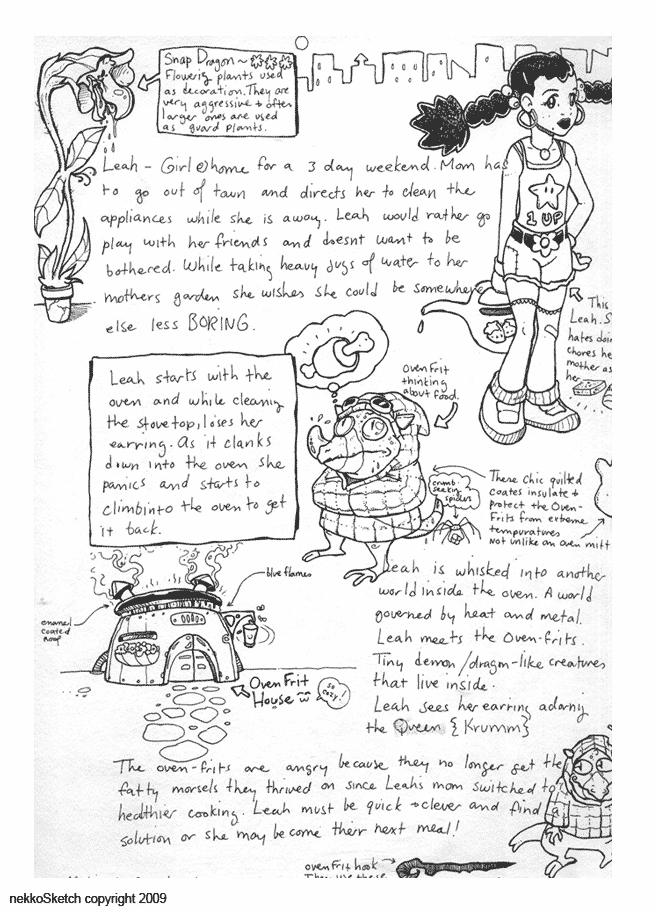 Snap Dragon ~
Flowering plants used
as decoration. They are
very aggressive + often
larger ones are used
as guard plants.
Leah - Girl @ home for a 3 day weekend. Mom has
to go out of town and directs her to clean the
appliances while she is away. Leah would rather go
play with her friends and doesnt want to be
bothered. While taking heavy jugs of water to her
mothers garden she wishes she could be somewhere
else less BORING.
1 UP
This
Leah. S
hates doin
chores he
mother as
her
Leah starts with the
oven and while cleaning
the stovetop, loses her
earring. As it clanks
down into the oven she
panics and starts to
climb into the oven to get
it back.
Oven Frit
thinking
about food.
crumb-
seeking
spiders
These chic quilted
coates insulate +
protect the Oven-
Frits from extreme
tempuratures
Not unlike an oven mitt
blue flames
enamel
coated
roof
Oven Frit
House
so
cozy!
Leah is whisked into another
world inside the oven. A world
governed by heat and metal.
Leah meets the Oven-frits.
Tiny demon/dragon-like creatures
that live inside.
Leah sees her earring adorning
the Queen {Krumm}
The oven-frits are angry because they no longer get the
fatty morsels they thrived on since Leahs mom switched to
healthier cooking. Leah must be quick + clever and find a
solution or she may become their next meal!
oven Frit hook
They use these
nekkoSketch copyright 2009